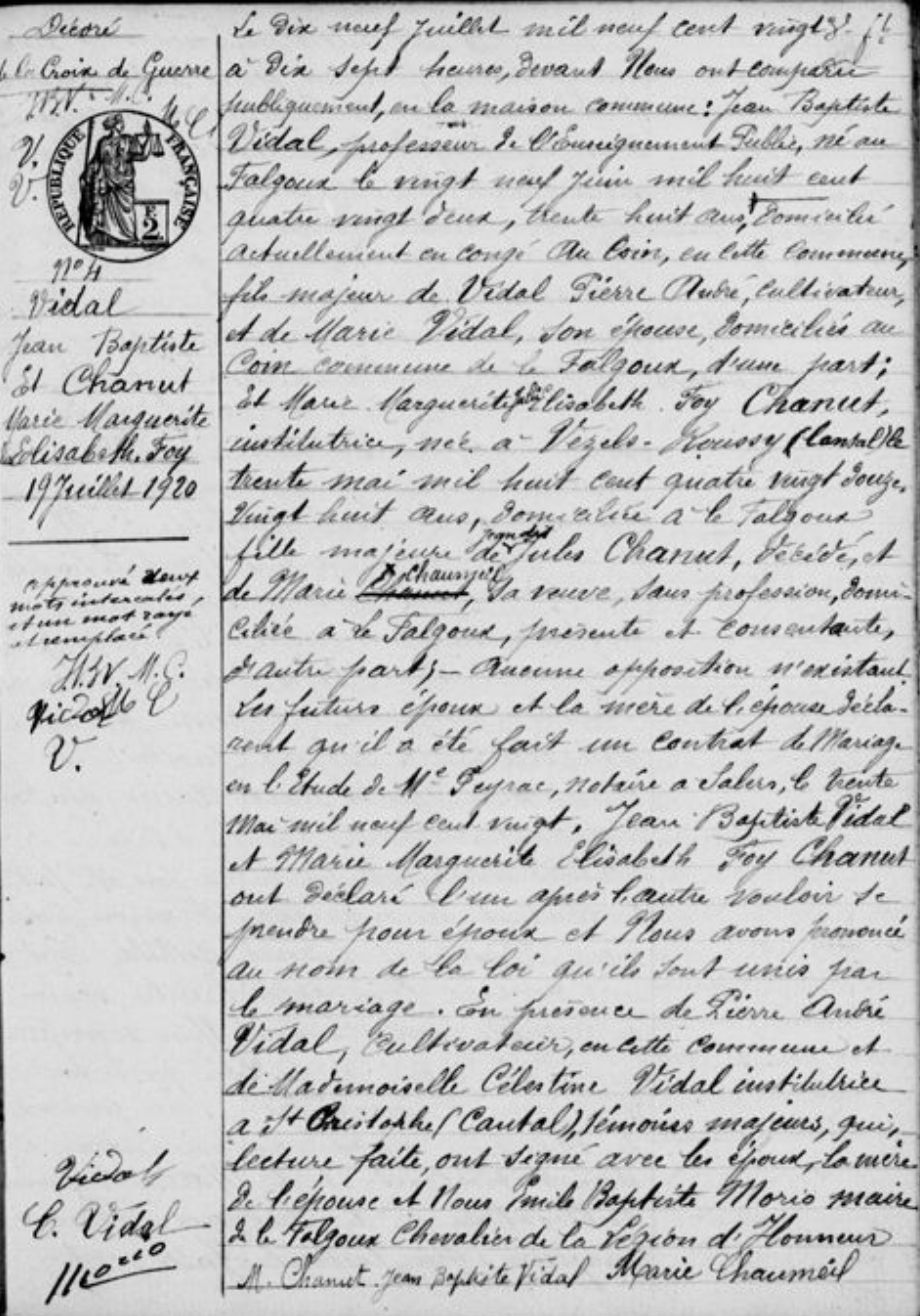 Décoré
de la Croix de Guerre
J.B.V. M.C.
M C
V.
V.
REPUBLIQUE FRANÇAISE
2
N° 4
Vidal
Jean Baptiste
Et Chanut
Marie Marguerite
Elisabeth. Foy
19 Juillet 1920
approuvé deux
mots intercalés,
et un mot rayé
et remplacé
J.B.V. M.C.
Vidal M C
V.
Viedal
C. Vidal
Morio
Le Dix neuf Juillet mil neuf cent vingt
à Dix Sept heures, devant Nous ont comparu
publiquement, en la maison commune: Jean Baptiste
Vidal, professeur de l'Enseignement Public, né au
Falgoux le vingt neuf Juin mil huit cent
quatre vingt deux, trente huit ans, domicilié
actuellement en congé Au Coin, en cette commune,
fils majeur de Vidal Pierre André, cultivateur,
et de Marie Vidal, son épouse, domiciliés au
Coin commune de le Falgoux, d'une part;
Et Marie Marguerite Elisabeth Foy Chanut,
institutrice, née à Vézels-Roussy (Cantal) le
trente mai mil huit cent quatre vingt douze.
Vingt huit ans, domiciliée à le Falgoux
fille majeure de Jules Chanut, décédé, et
de Marie Chaumeil, sa veuve, sans profession, domi-
ciliée à Le Falgoux, présente et consentante,
d'autre part; - Aucune opposition n'existant.
Les futurs époux et la mère de l'épouse décla-
rent qu'il a été fait un contrat de Mariage
en l'Etude de Me Peyrac, notaire a Salers, le trente
Mai mil neuf cent vingt. Jean Baptiste Vidal
et Marie Marguerite Elisabeth Foy Chanut
ont déclaré l'un après l'autre vouloir se
prendre pour époux et Nous avons prononcé
au nom de la loi qu'ils sont unis par
le mariage. En présence de Pierre André
Vidal, Cultivateur, en cette commune et
de Mademoiselle Célestine Vidal institutrice
a St Cristophe (Cantal), témoins majeurs, qui,
lecture faite, ont signé avec les époux, la mère
de l'épouse et Nous Emile Baptiste Morio maire
de le Falgoux Chevalier de la Légion d'Honneur
M. Chanut Jean Baptiste Vidal Marie Chaumeil